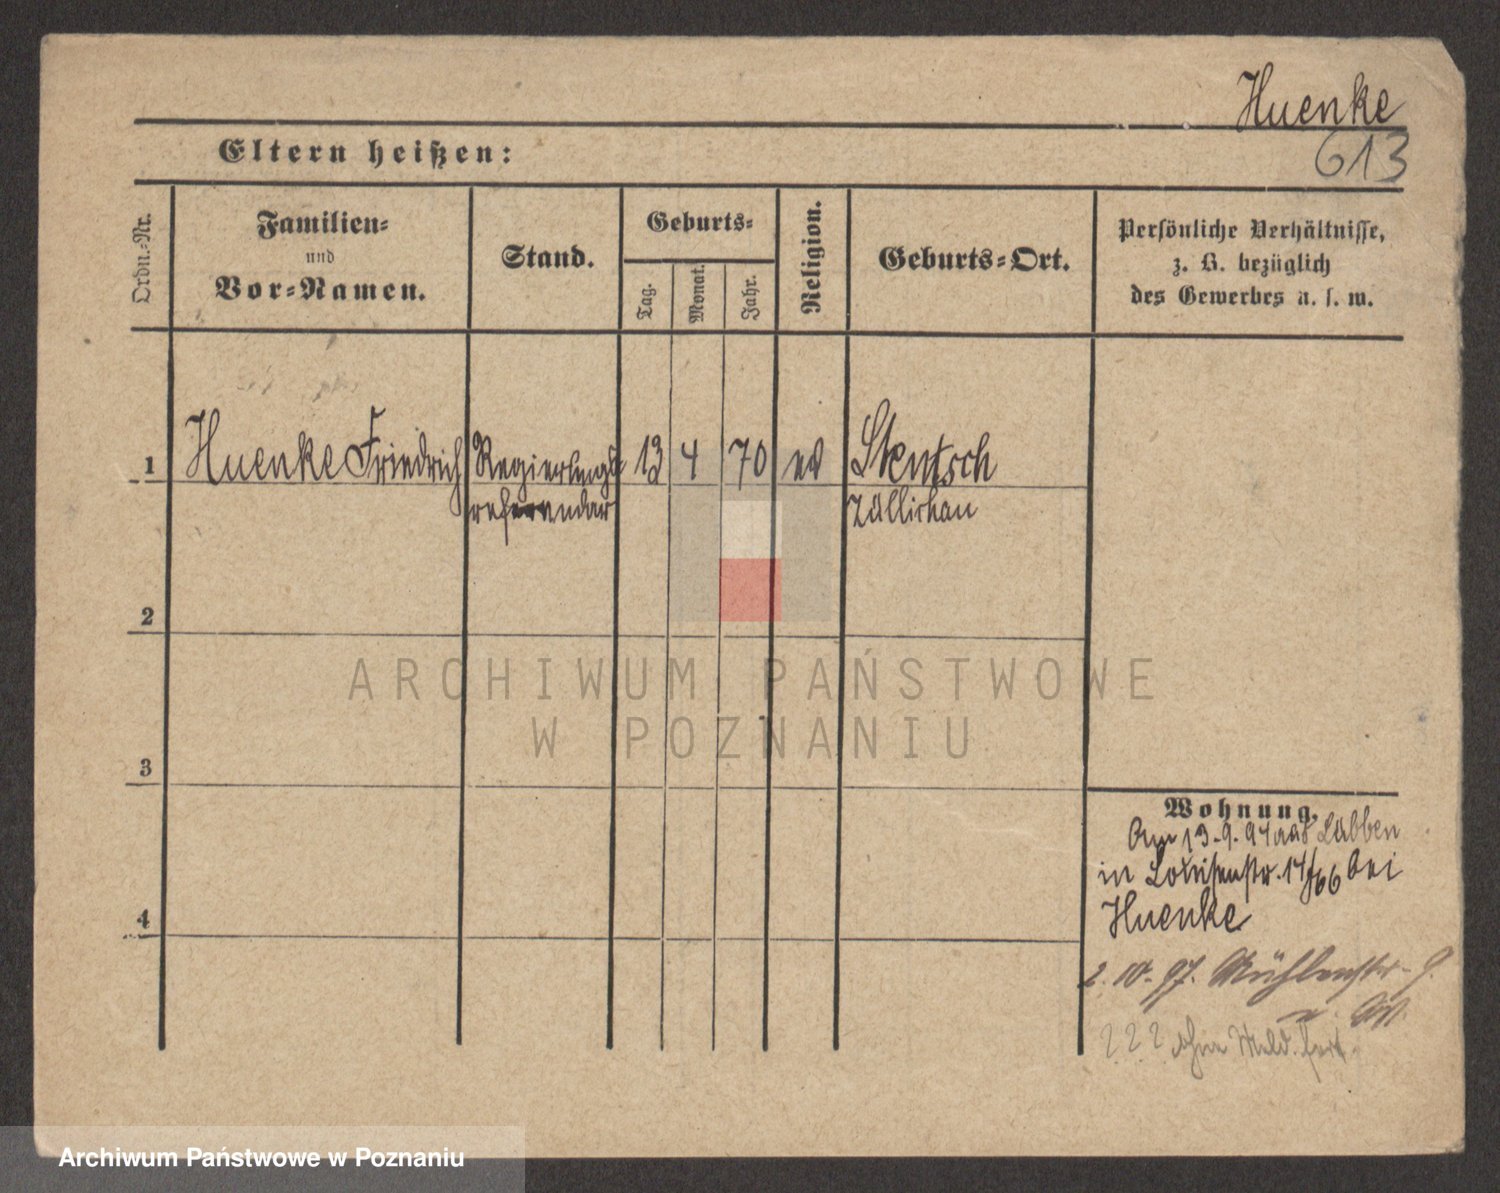 Huenke
613
Eltern heißen:
Ordn.-Nr.
Familien-
und
Vor-Namen.
Stand.
Geburts-
Tag.
Monat.
Jahr.
Religion.
Geburts-Ort.
Persönliche Verhältnisse,
z. B. bezüglich
des Gewerbes u. s. w.
1 Huenke Friedrich Regierungs 13 4 70 ev Stentsch
referendar Züllichau
2
ARCHIWUM PAŃSTWOWE
W POZNANIU
3
Wohnung.
Am 19.9.94 aus Lübben
in Louisenstr. 14/66 bei
4
Huenke
2.10.97. Mühlenstr. 9.
? ? ? ohne Meld. fort
Archiwum Państwowe w Poznaniu